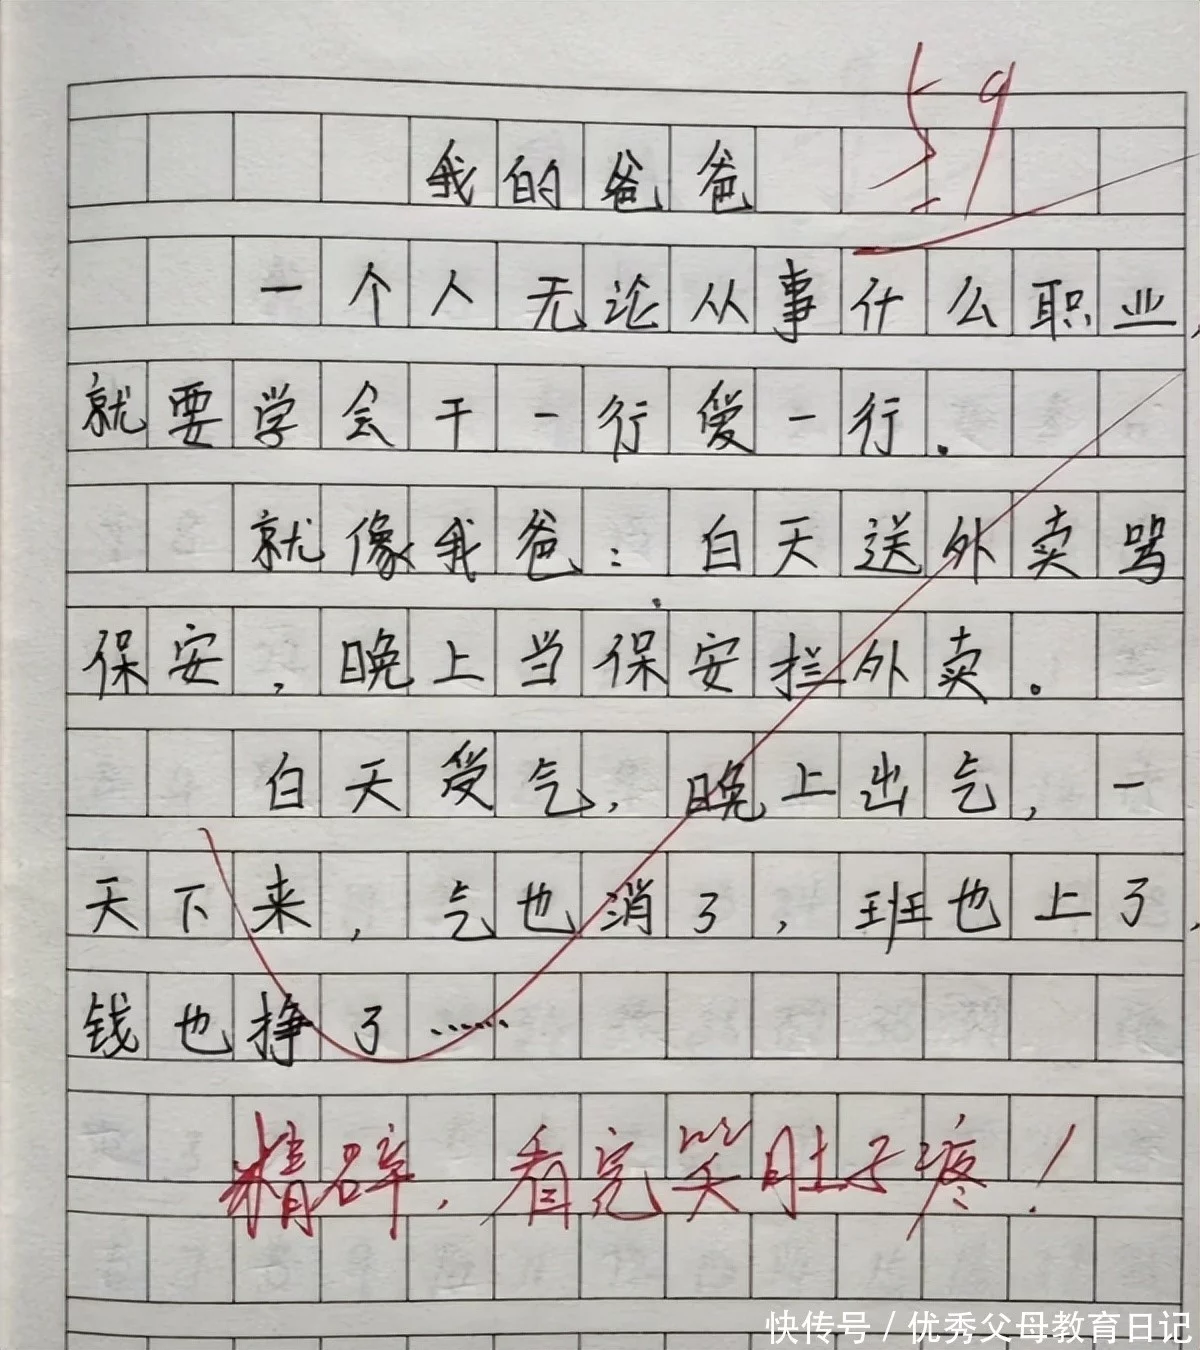 59
我的爸爸
一个人无论从事什么职业,
就要学会干一行爱一行.
就像我爸:白天送外卖骂
保安,晚上当保安拦外卖。
白天受气,晚上出气,一
天下来,气也消了,班也上了,
钱也挣了……
精辟,看完笑肚子疼!
快传号/优秀父母教育日记